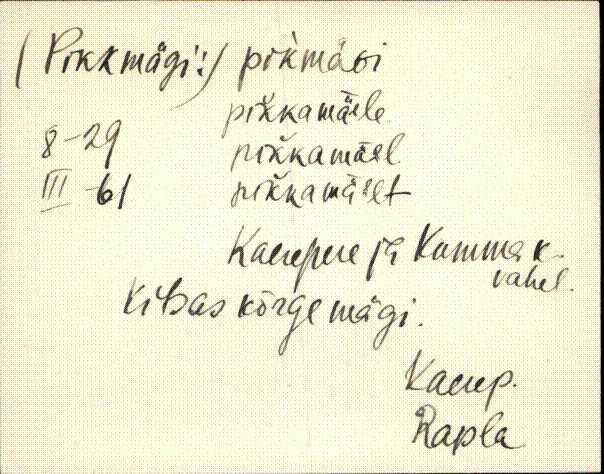 (Pikkmägi:) pikmäGi
pikkamäele
8-29 pikkamäel
III -61 pikkamäelt
Kaerepere ja Kumma k.
vahel.
Kitsas kõrge mägi.
Kaerep.
Rapla